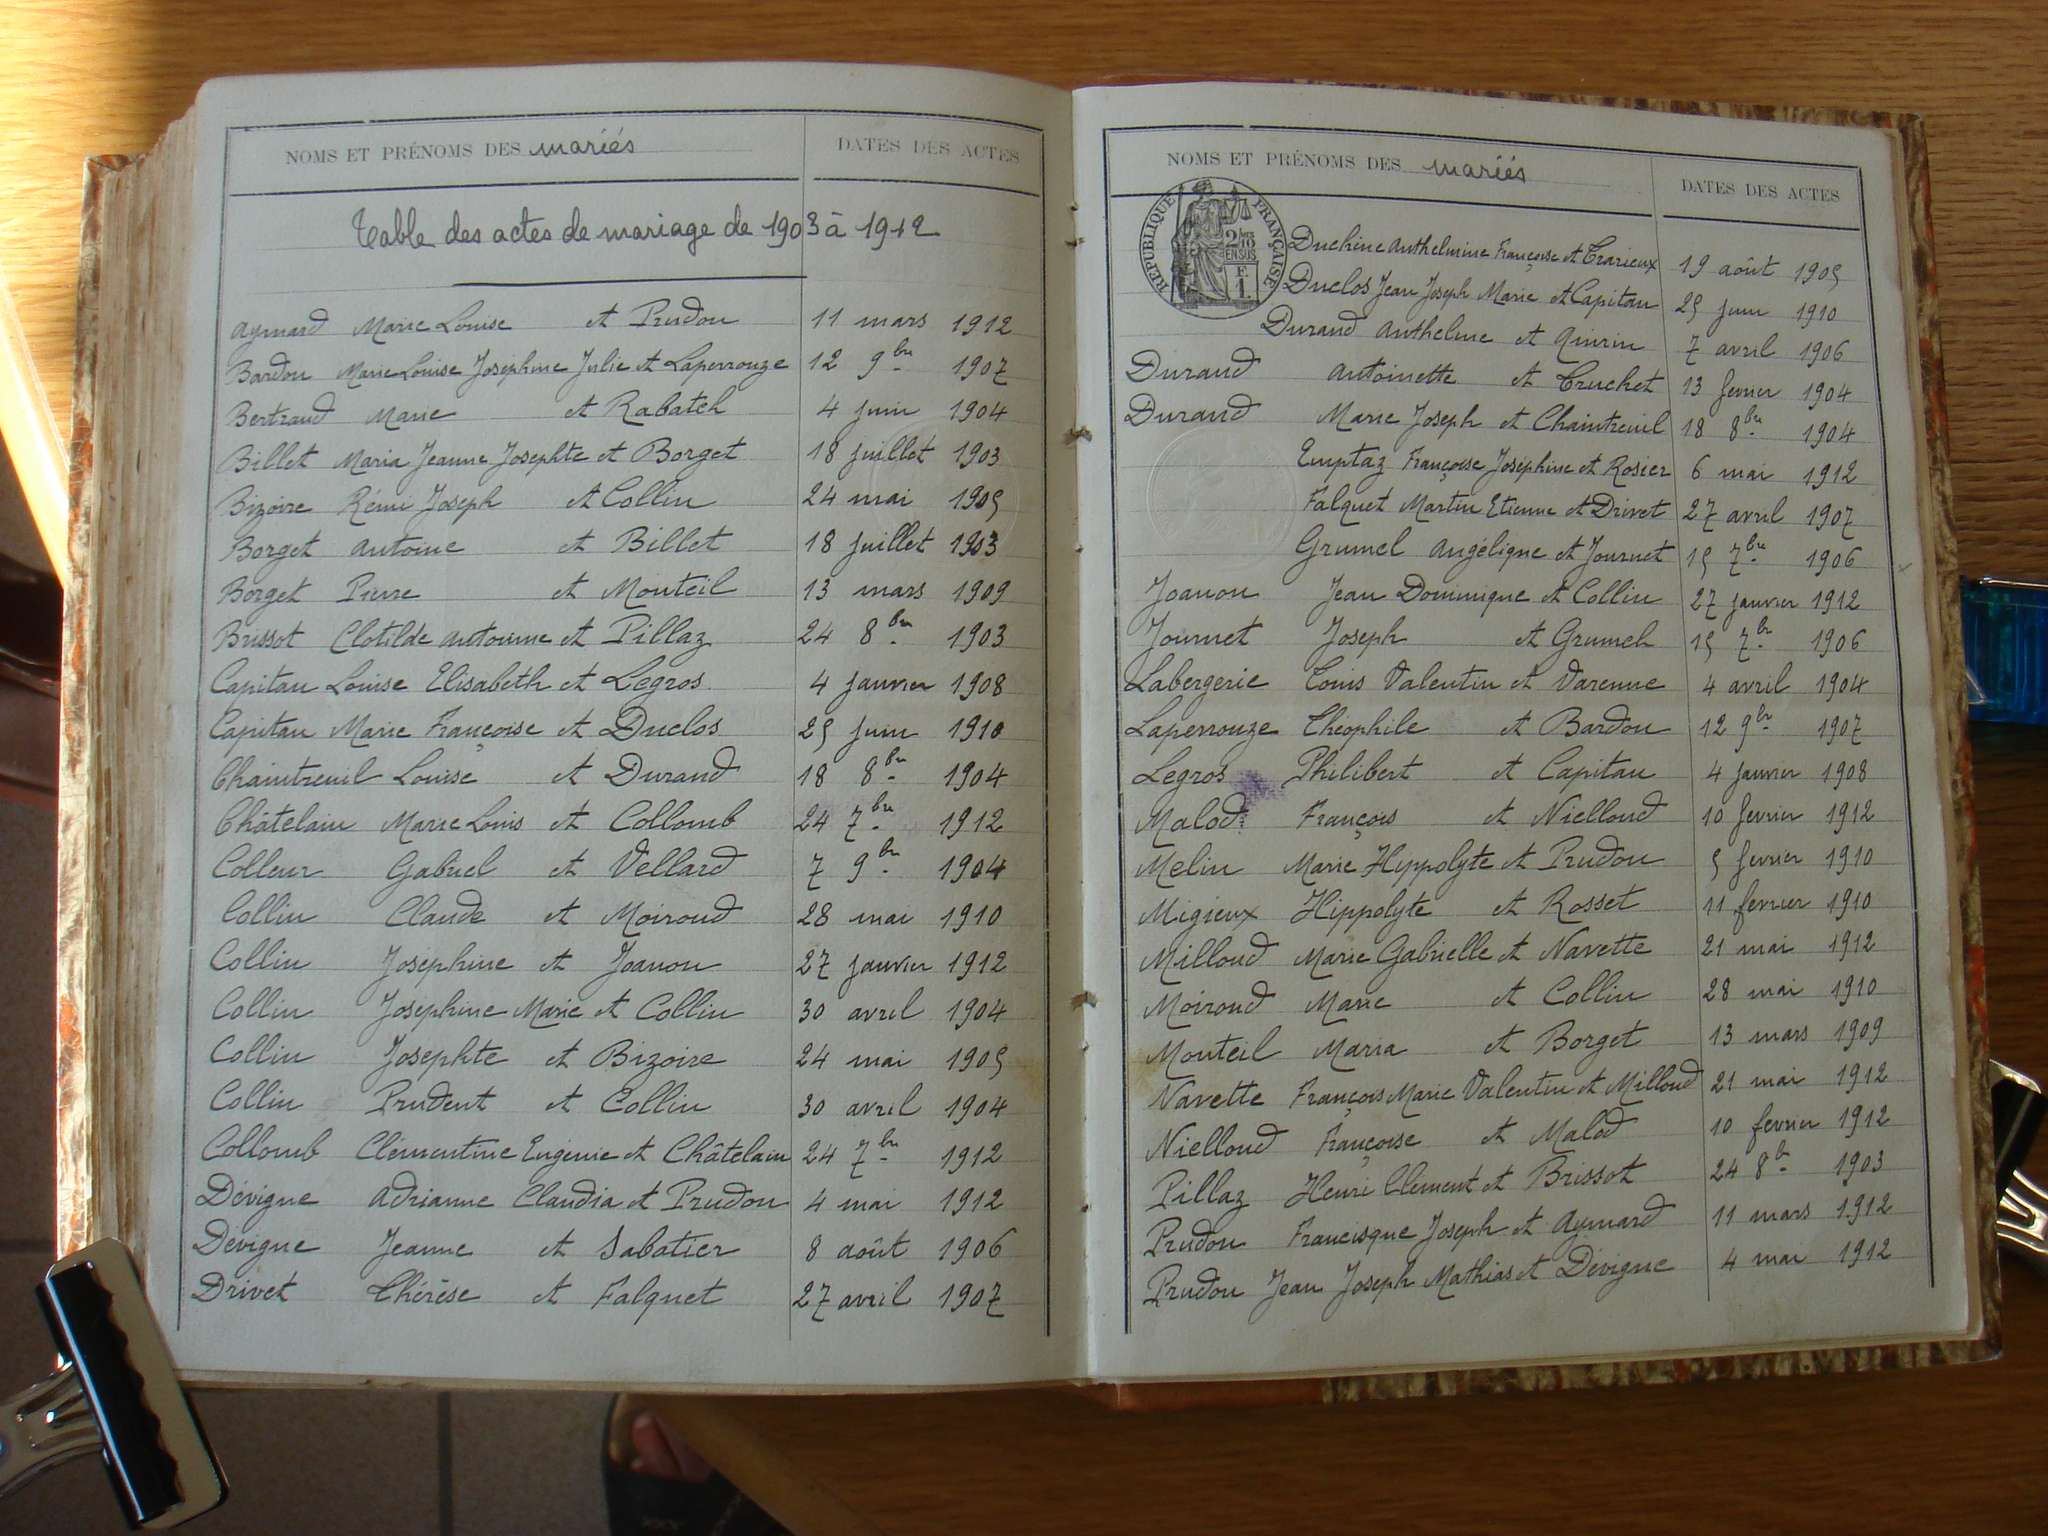 NOMS ET PRÉNOMS DES mariés DATES DES ACTES
Table des actes de mariage de 1903 à 1912
Aymard Marie Louise et Prudon 11 mars 1912
Bardon Marie Louise Joséphine Julie et Laperrouze 12 9bre 1907
Bertrand Marie et Rabatel 4 juin 1904
Billet Maria Jeanne Josephte et Borget 18 juillet 1903
Bizoire Rémi Joseph et Collin 24 mai 1905
Borget Antoine et Billet 18 juillet 1903
Borget Pierre et Monteil 13 mars 1909
Brissot Clotilde Antoinine et Pillaz 24 8bre 1903
Capitan Louise Elisabeth et Legros 4 janvier 1908
Capitan Marie Françoise et Duclos 25 juin 1910
Chaintreuil Louise et Durand 18 8bre 1904
Châtelain Marie Louis et Collomb 24 7bre 1912
Colleur Gabriel et Vellard 7 9bre 1904
Collin Claude et Moiroud 28 mai 1910
Collin Joséphine et Joanon 27 janvier 1912
Collin Joséphine Marie et Collin 30 avril 1904
Collin Josephte et Bizoire 24 mai 1905
Collin Prudent et Collin 30 avril 1904
Collomb Clémentine Eugénie et Châtelain 24 7bre 1912
Dévigne Adrianne Claudia et Prudon 4 mai 1912
Dévigne Jeanne et Sabatier 8 août 1906
Drivet Thérèse et Falquet 27 avril 1907
NOMS ET PRÉNOMS DES mariés DATES DES ACTES
RÉPUBLIQUE FRANÇAISE
2/10 EN SUS
F. 1.
Duchine Anthelmine Françoise et Trarieux 19 août 1905
Duclos Jean Joseph Marie et Capitan 25 juin 1910
Durand Anthelme et Quirin 7 avril 1906
Durand Antoinette et Truchet 13 fevrier 1904
Durand Marie Joseph et Chaintreuil 18 8bre 1904
Emptaz Françoise Joséphine et Rosier 6 mai 1912
Falquet Martin Etienne et Drivet 27 avril 1907
Grumel Angélique et Journet 15 7bre 1906
Joanon Jean Dominique et Collin 27 janvier 1912
Journet Joseph et Grumel 15 7bre 1906
Labergerie Louis Valentin et Varenne 4 avril 1904
Laperrouze Théophile et Bardon 12 9bre 1907
Legros Philibert et Capitan 4 janvier 1908
Malod François et Nielloud 10 fevrier 1912
Melin Marie Hyppolyte et Prudon 5 fevrier 1910
Migieux Hippolyte et Rosset 11 fevrier 1910
Milloud Marie Gabrielle et Navette 21 mai 1912
Moiroud Marie et Collin 28 mai 1910
Monteil Maria et Borget 13 mars 1909
Navette François Marie Valentin et Milloud 21 mai 1912
Nielloud Françoise et Malod 10 fevrier 1912
Pillaz Henri Clement et Brissot 24 8bre 1903
Prudon Francisque Joseph et Aymard 11 mars 1912
Prudon Jean Joseph Mathias et Dévigne 4 mai 1912